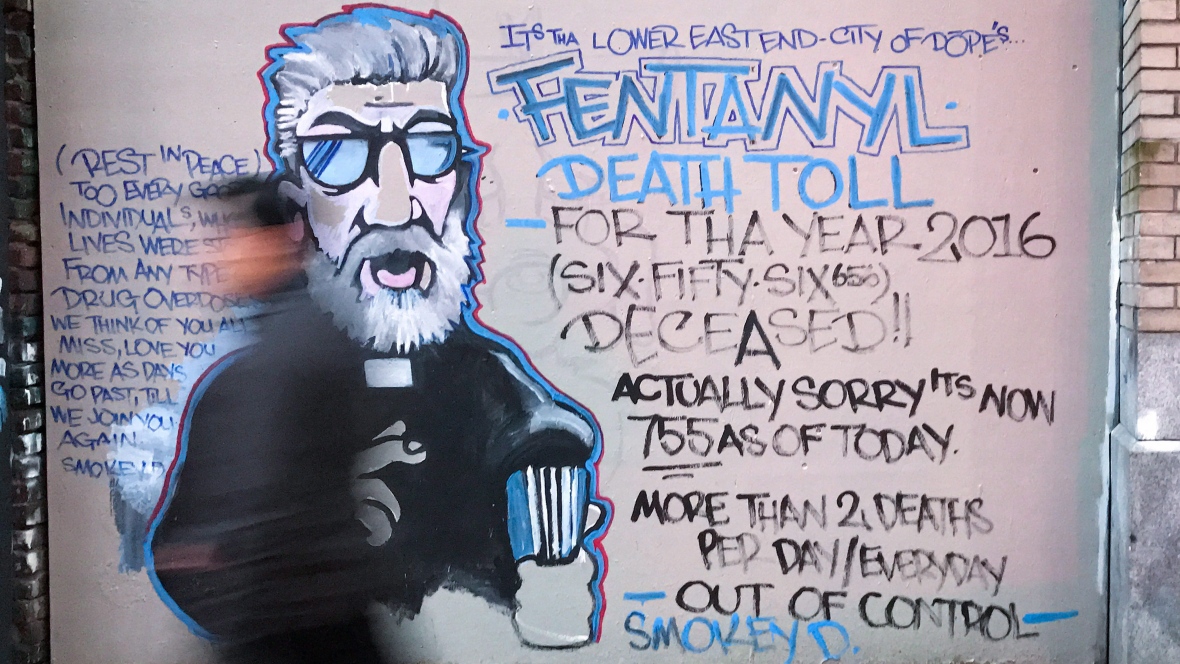 (REST IN PEACE)
TOO EVERY
INDIVIDUALS,
LIVES WERE
FROM ANY TYPE
DRUG OVERDOSE
WE THINK OF YOU ALL
MISS, LOVE YOU
MORE AS DAYS
GO PAST, TILL
WE JOIN YOU
AGAIN.
SMOKEY D.
ITS THA LOWER EAST END-CITY OF DOPE'S...
·FENTANYL·
DEATH TOLL
- FOR THA YEAR 2016
(SIX·FIFTY·SIX 656)
DECEASED!!
ACTUALLY SORRY ITS NOW
755 AS OF TODAY.
MORE THAN 2, DEATHS
PER DAY/EVERYDAY
- OUT OF CONTROL -
SMOKEY D.